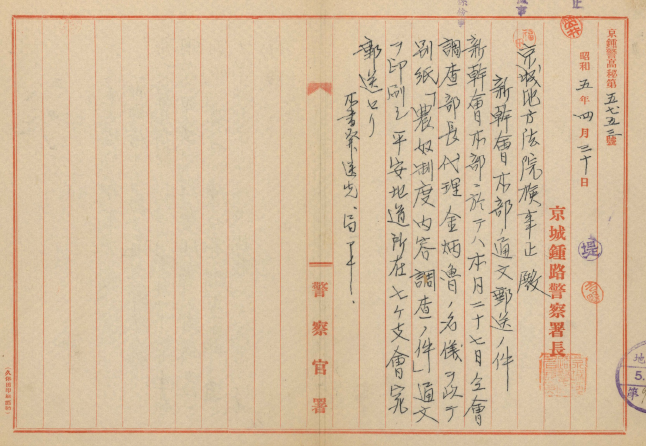 京鍾警高秘第五七五三號
昭和五年四月三十日
京城鍾路警察署長
京城地方法院検事正殿
新幹會本部ノ通文郵送ノ件
新幹會本部ニ於テハ本月二十七日全會
調査部長代理金炳魯ノ名儀ヲ以テ
別紙「農奴制度内容調査ノ件」通文
ヲ印刷シ平安北道所在七ヶ支會宛
郵送セリ
本書発送先、局
警察官署
堤
地
5.